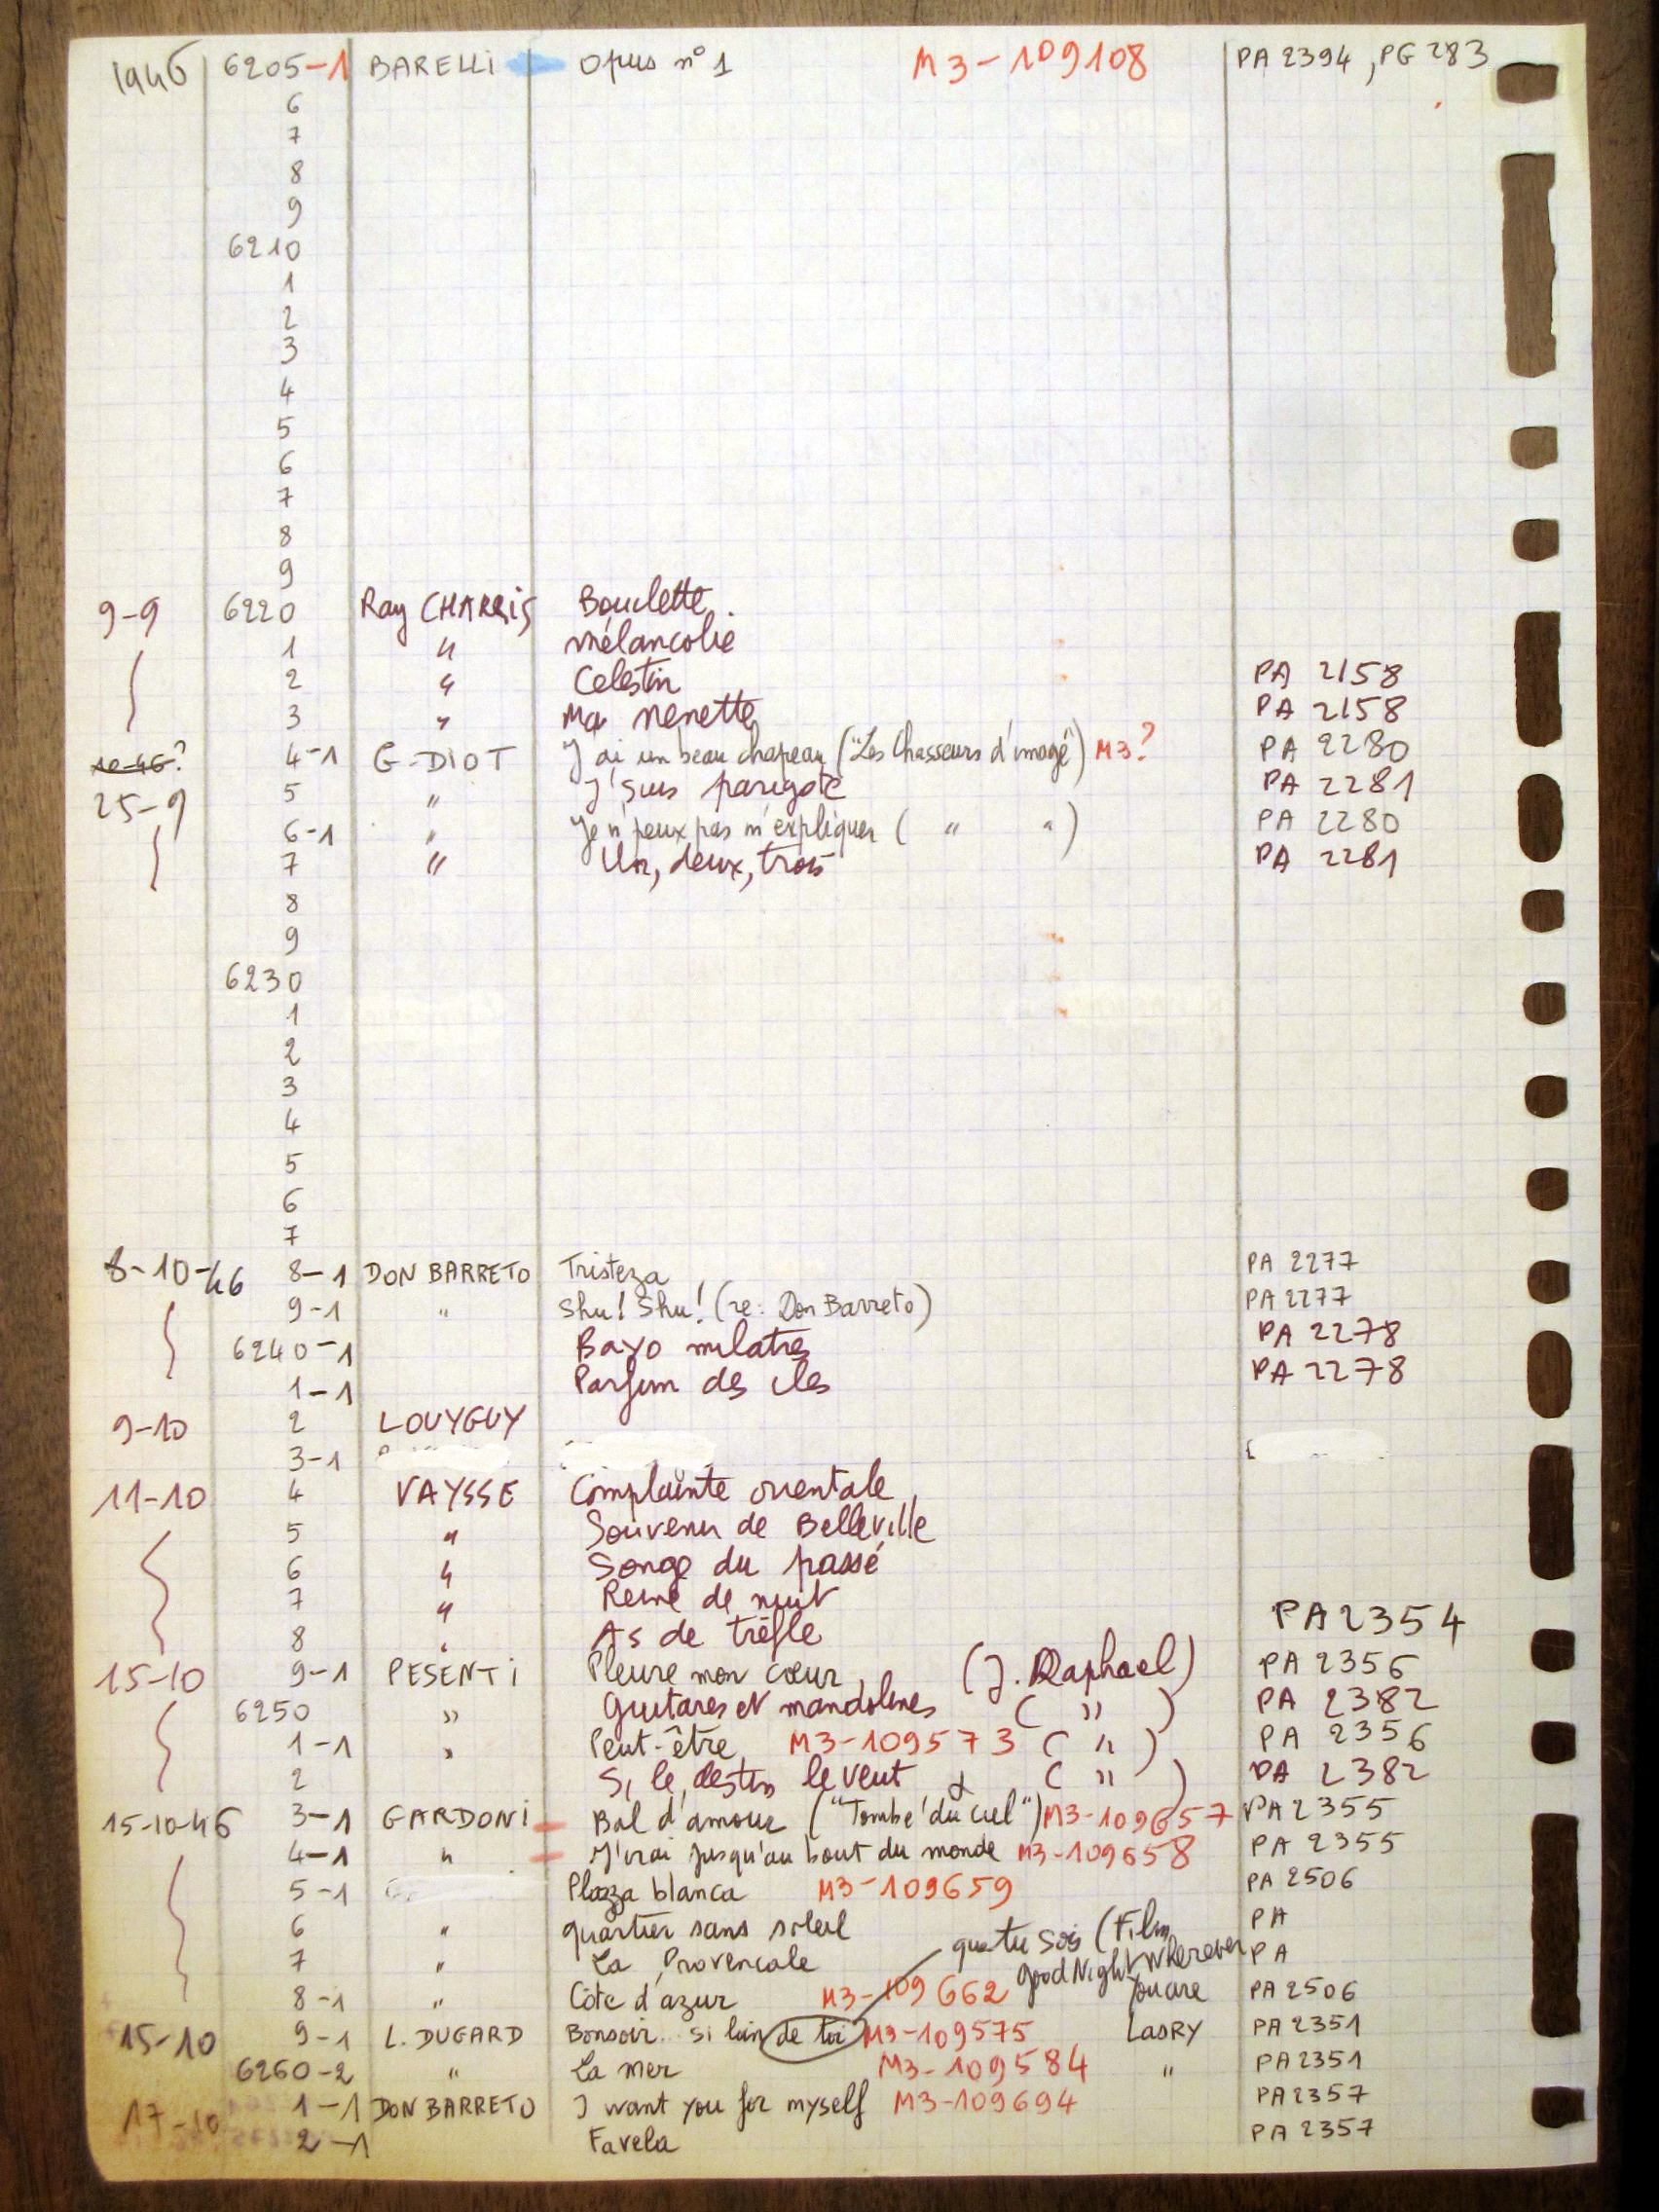 1946 6205-1 BARELLI Opus n° 1 M3-109108 PA 2394, PG 283
6
7
8
9
6210
1
2
3
4
5
6
7
8
9
9-9 6220 Ray CHARRIS Bouclette.
1 " Mélancolie
2 " Celestin PA 2158
3 " Ma nenette PA 2158
10-46? 4-1 G. DIOT J'ai un beau chapeau ("Les Chasseurs d'image") M3? PA 2280
25-9 5 " J'suis parigote PA 2281
6-1 " Je n'peux pas m'expliquer ( " " ) PA 2280
7 " Un, deux, trois PA 2281
8
9
6230
1
2
3
4
5
6
7
8-10-46 8-1 DON BARRETO Tristeza PA 2277
9-1 " Shu! Shu! (re: Don Barreto) PA 2277
6240-1 Bayo mulatres PA 2278
1-1 Parfum des iles PA 2278
9-10 2 LOUYGUY
3-1
11-10 4 VAYSSE Complainte orientale
5 " Souvenir de Belleville
6 " Songe du passé
7 " Reine de nuit
8 " As de trèfle PA 2354
15-10 9-1 PESENTI Pleure mon cœur (J. Raphael) PA 2356
6250 " Guitares et mandolines ( " ) PA 2382
1-1 " Peut-être M3-109573 ( " ) PA 2356
2 Si le destin le veut ( " ) PA 2382
15-10-46 3-1 GARDONI Bal d'amour ("Tombé du ciel") M3-109657 PA 2355
4-1 " J'irai jusqu'au bout du monde M3-109658 PA 2355
5-1 Plazza blanca M3-109659 PA 2506
6 " quartier sans soleil PA
que tu sois (Film
7 " La Provencale PA
Good Night Wherever
8-1 " Côte d'azur M3-109662 You are PA 2506
15-10 9-1 L. DUGARD Bonsoir.. si loin de toi M3-109575 LASRY PA 2351
6260-2 " La mer M3-109584 " PA 2351
17-10 1-1 DON BARRETO I want you for myself M3-109694 PA 2357
2-1 Favela PA 2357